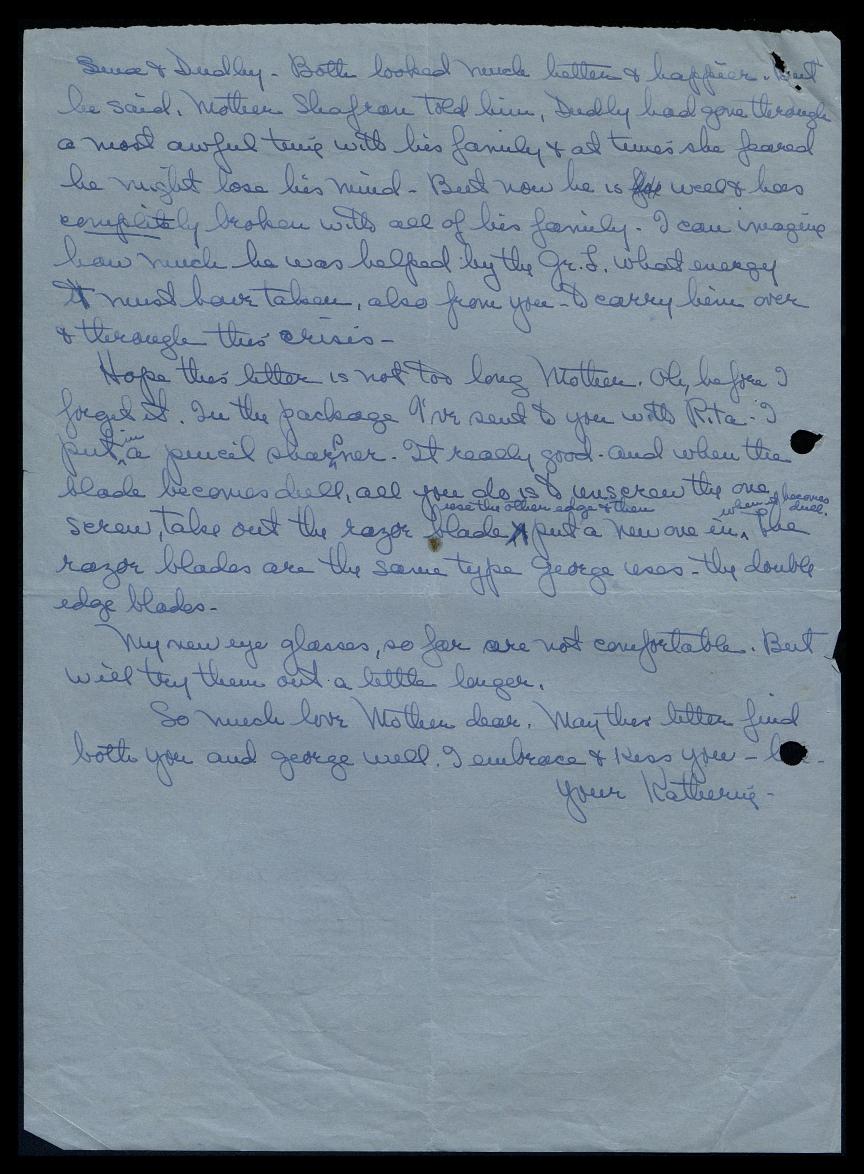 & Dudley - Both looked much better & happier. But
he said, Mother Shafron told him, Dudly had gone through
a most awful time with his family & at times she feared
he might lose his mind - But now he is well & has
completely broken with all of his family. I can imagine
how much he was helped by the Gr. S. what energy
It must have taken, also from you - to carry him over
& through this crisis -
Hope this letter is not too long Mother. Oh, before I
forget it. In the package I've sent to you with Rita - I
put in a pencil sharpner. It really good - and when the
blade becomes dull, all you do is to unscrew the one
use the other edge & then when it becomes dull.
screw, take out the razor blade put a new one in, the
razor blades are the same type George uses - the double
edge blades -
My new eye glasses, so far are not comfortable. But
will try them out a little longer.
So much love Mother dear. May this letter find
both you and george well. I embrace & kiss you -
your Katherine -